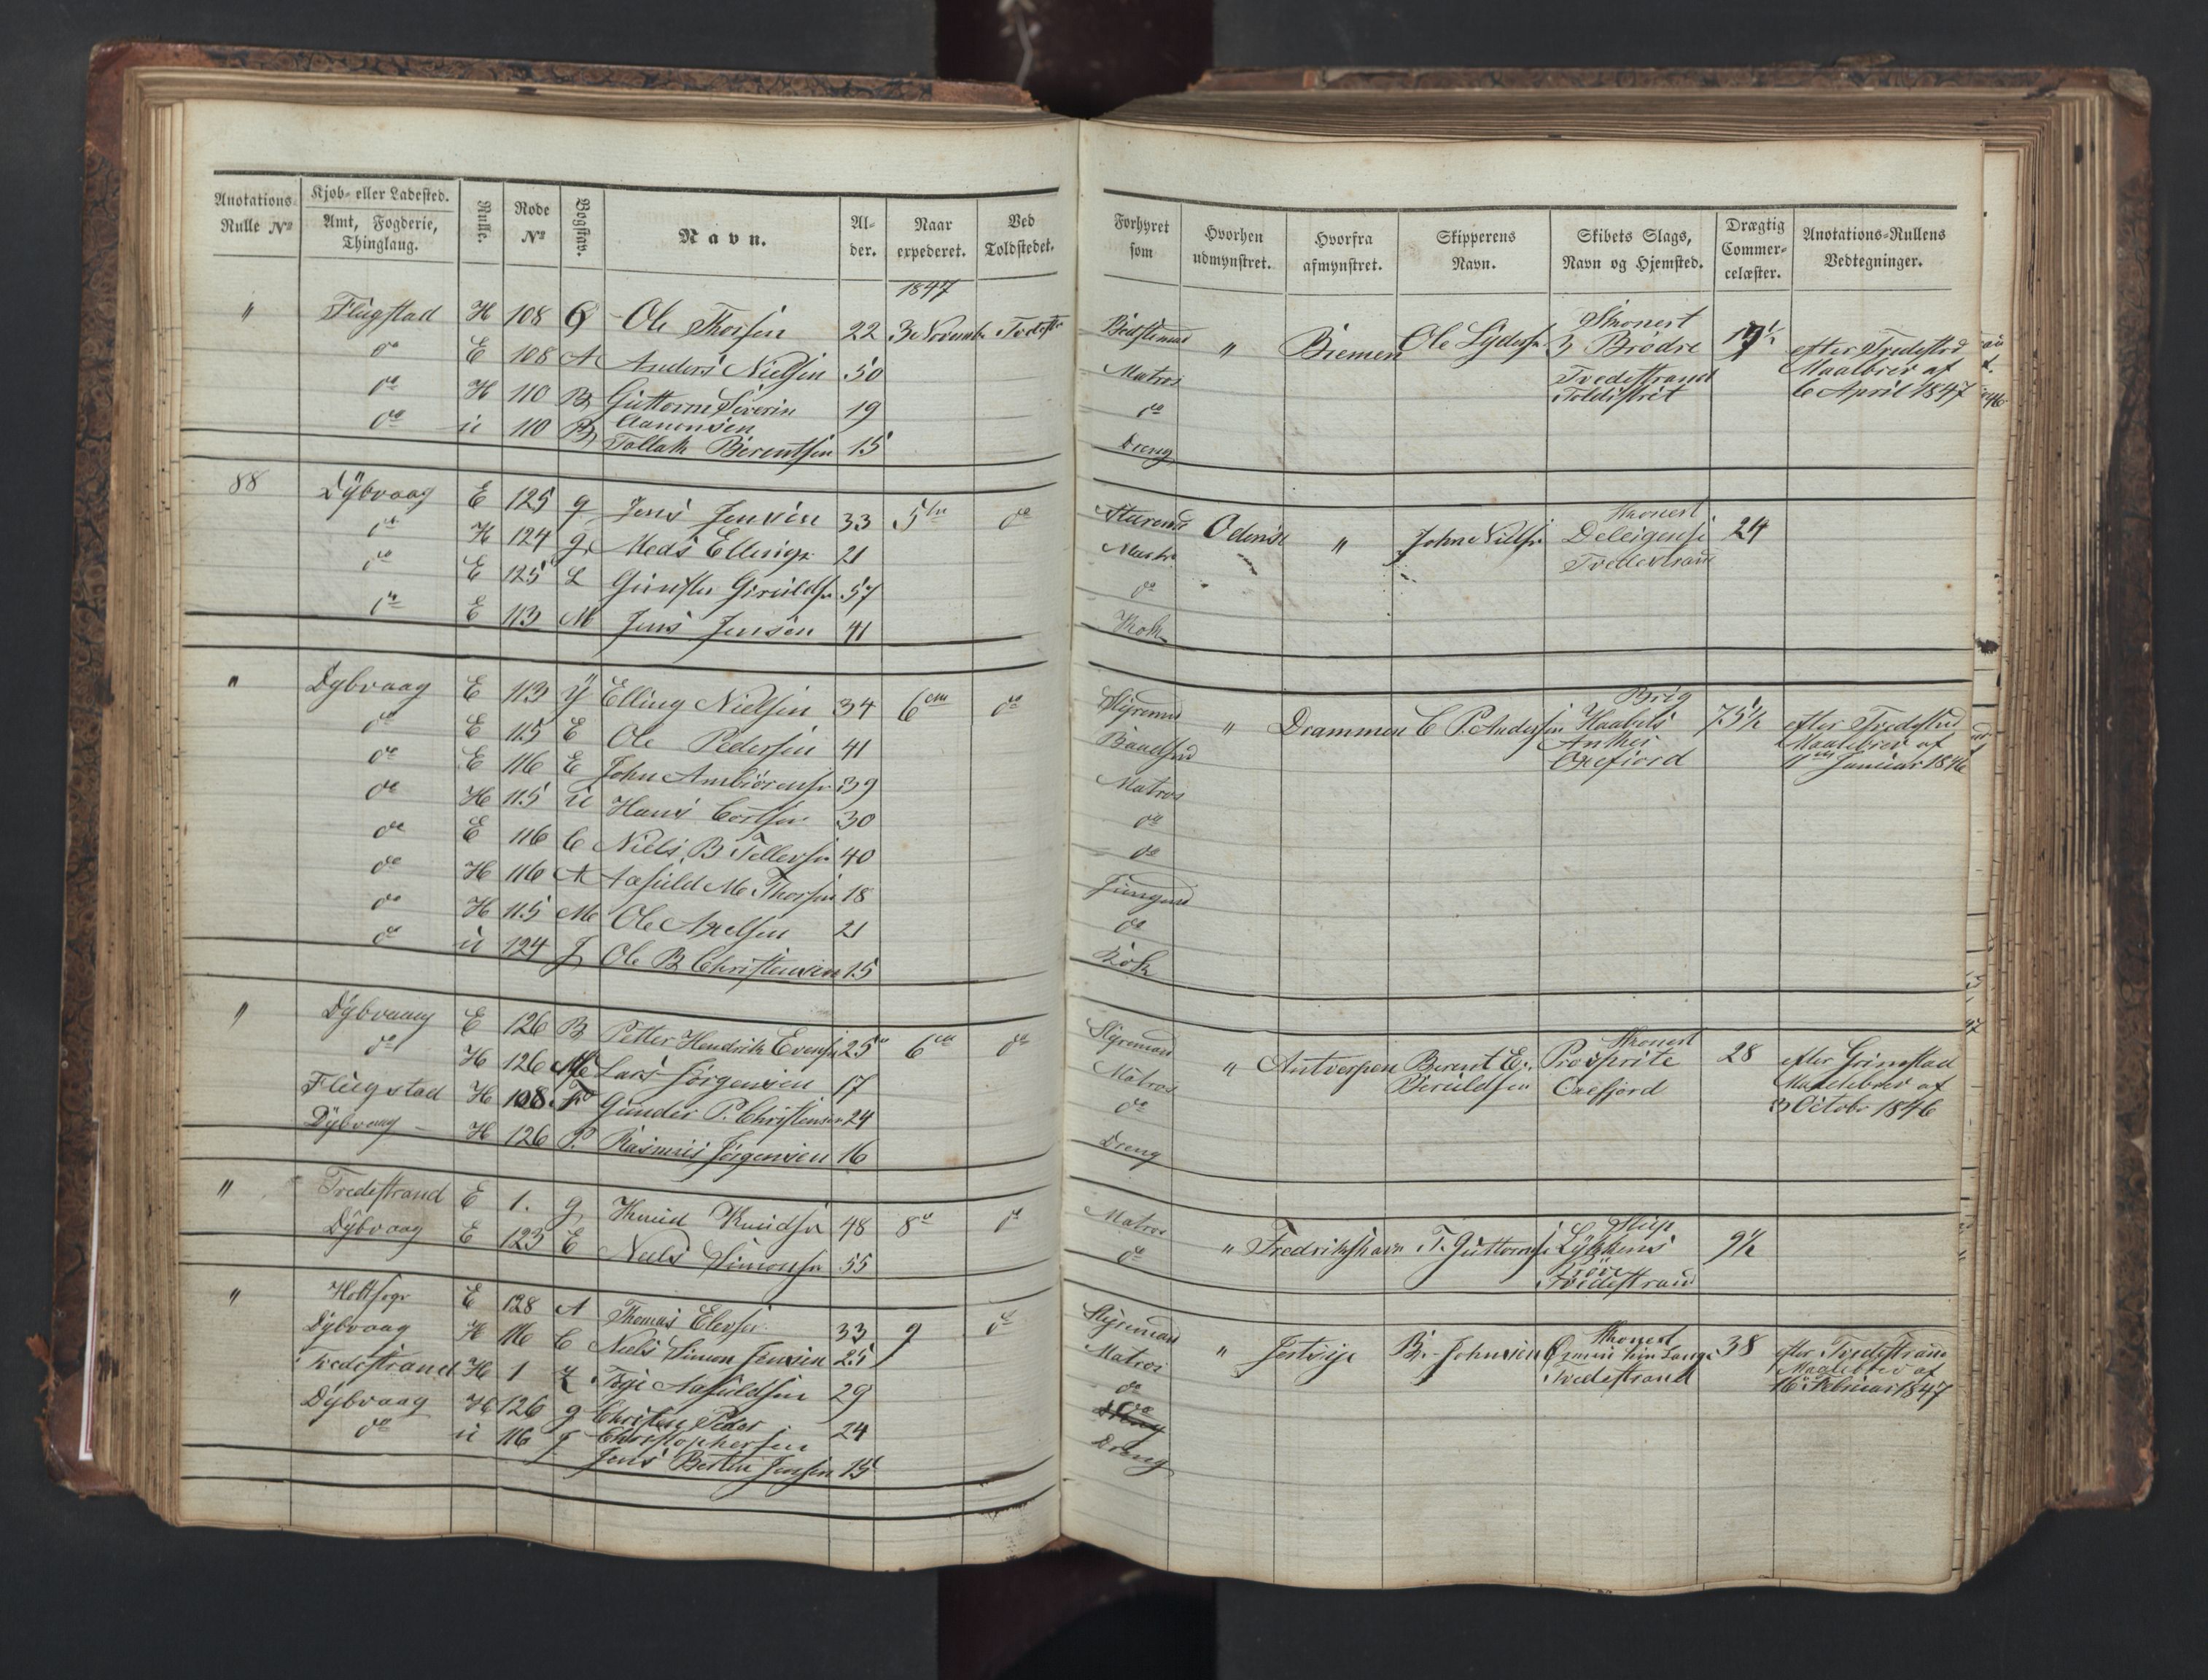 Anotations- Rulle No
Kjøb- eller Ladested. Amt, Fogderie, Thinglaug.
Rulle.
Rode No
Bogstav.
Navn.
Al- der.
Naar expederet.
Ved Toldstedet.
1847
" Flugstad H 108 Ole Thorsen 22 3 Novembr Tvedestr
do E 108 A Anders Nielsen 50
do H 110 B Guttorm Siverin Aanonsen 19
do u 110 B Tallak Berentsen 15
88 Dÿbvaag E 125 g Jens Jensen 33 5te do
do H 124 g Mads Ellings 21
do E 125 L 57
do E 113 M Jens Jensen 41
" Dybvaag E 113 Ÿ Elling Nielsen 34 6 do
do E 115 E Ole Pedersen 41
do E 116 E John Ambiörnsen 39
do H 115 u Hans 30
do E 116 C Niels B Tellevsen 40
do H 116 A Aasuld M Thorsen 18
do H 115 M Ole Axelsen 21
do u 124 J Ole B Christensen 15
" Dÿbvaag E 126 B Petter Hendrik Evensen 25 6 do
do H 126 M Lars Jörgensen 17
Flugstad H 108 F Gunder P. Christensen 24
Dÿbvaag H 126 P. Rasmus Jörgensen 16
" Tvedestrand E 1. g Knud Knudsen 48 8 do
Dÿbvaag E 123 E Niels Simonsen 55
" Holtsogn E 128 A Thomas 33 9 do
Dÿbvaag H 116 C Niels Simon Jensen 25
Tvedestrand H 1 Z Terje Aasuldsen 29
Dÿbvaag H 126 g Christen Peder Christophersen 24
do u 116 J Jens Bertin Jensen 15
Forhyret som
Hvorhen udmynstret.
Hvorfra afmynstret.
Skipperens Navn.
Skibets Slags, Navn og Hjemsted.
Drægtig Commer- celæster.
Anotations-Rullens Vedtegninger.
Bedstemand " Bremen Ole Lydersen Skonert 3 Brödre Tvedestrand Tolddistrict efter Tvedestrd Maalbrev af 6 April 1847
Matros
do
Dreng
Styrmd Odense " John Nielsen Skonert Tvedestrand 24
Matrs
do
Kok
Styrmd " Drammen C P. Andersen Brig Haabets Anker Oxefiord 75½ efter Tvedestrd Maalebrev af Januar 1846
Baadsmd
Matros
do
do
Jungmd
do
Kok
Styrmand " Antverpen Berent E. Beruldsen Skonert Prosprite Oxefjord 28 efter Grimstad Maalebrev af 3 Octobr 1846
Matros
do
Dreng
Matros " Fredrikshavn T. Guttormsen Slup Lÿkkens Pröve Tvedestrand 9½
do
Styrmand " B. Johnsen Skonert Tvedestrand 38 efter Tvedestrand Maalebrev af 16 Februar 1847
Matros
do
do
Dreng